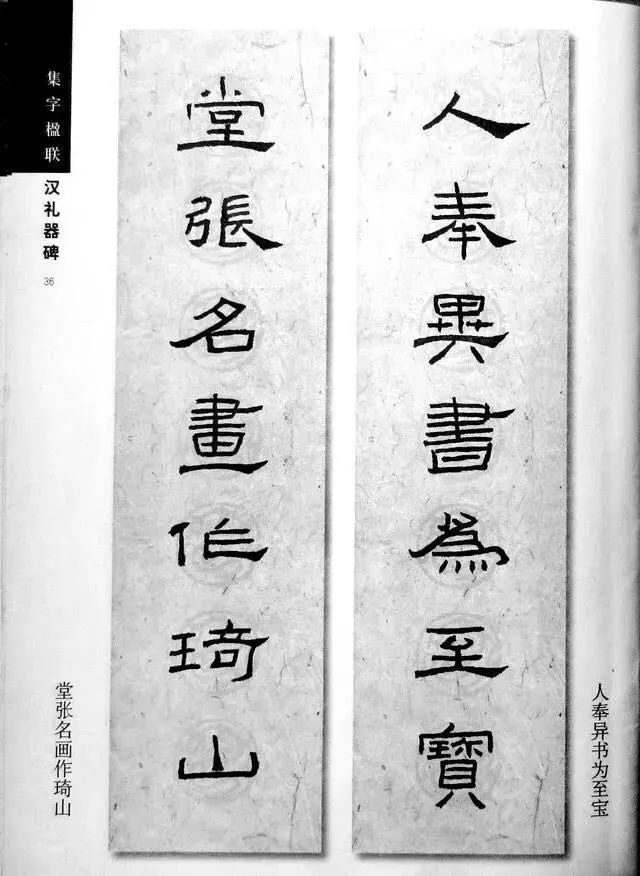 人奉異書為至寶
堂張名畫作琦山
人奉异书为至宝
堂张名画作琦山
集字楹联
汉礼器碑
36